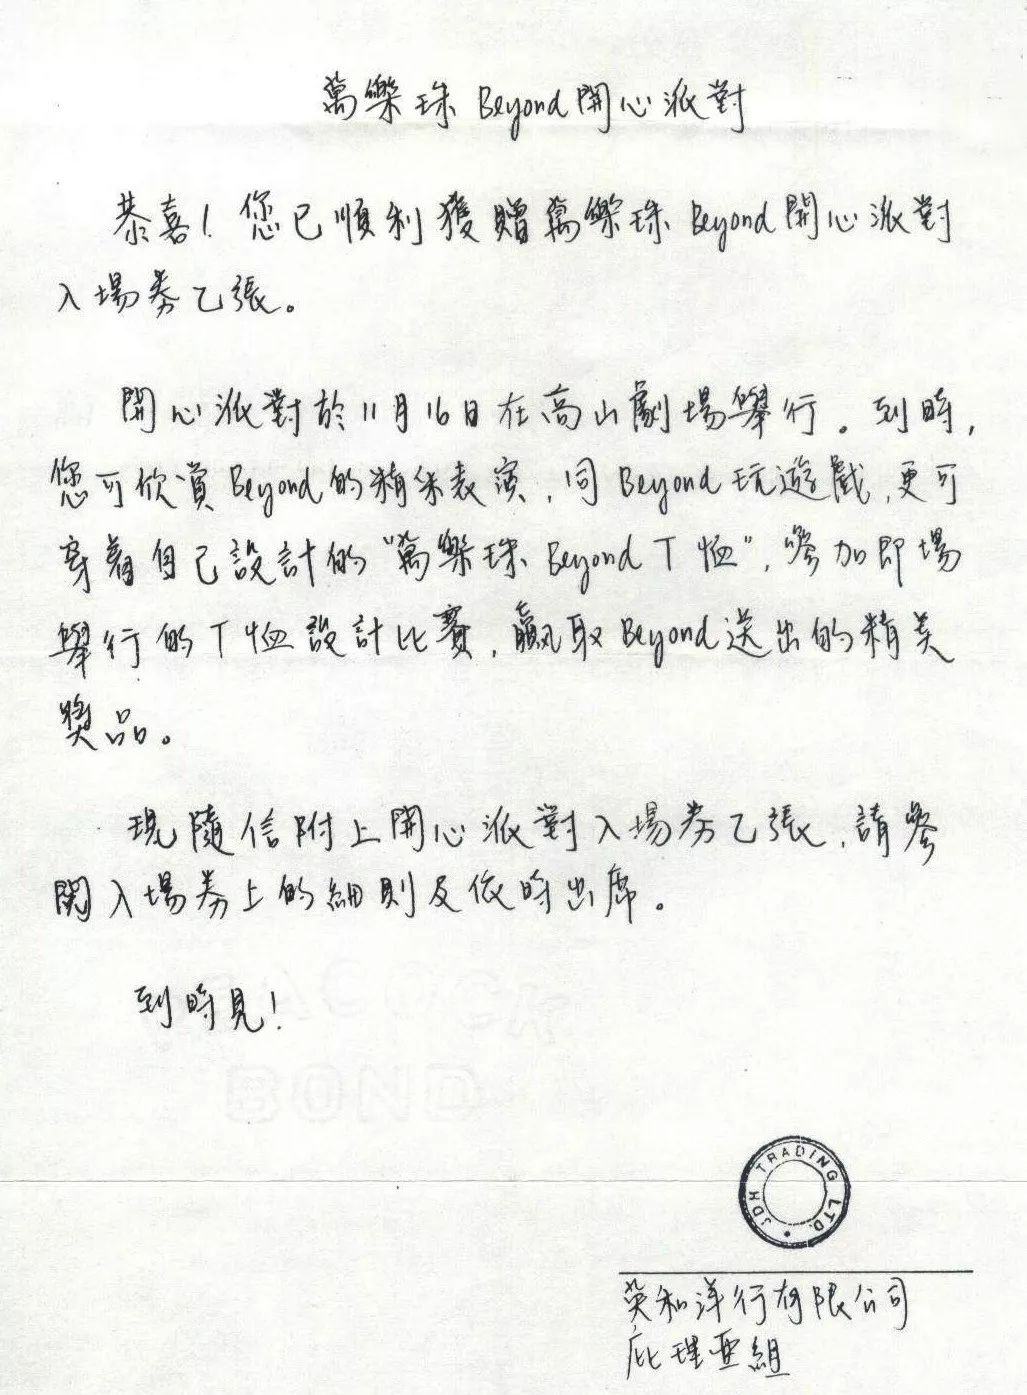 萬樂珠 Beyond 開心派對
恭喜！您已順利獲贈萬樂珠 Beyond 開心派對
入場券乙張。
開心派對於11月16日在高山劇場舉行。到時，
您可欣賞Beyond的精采表演，同Beyond玩遊戲，更可
穿着自己設計的"萬樂珠 Beyond T恤"，參加即場
舉行的T恤設計比賽，贏取Beyond送出的精美
獎品。
現隨信附上開心派對入場券乙張，請參
閱入場券上的細則及依時出席。
到時見！
BOND
JDH TRADING LTD.
英和洋行有限公司
庇理亞組